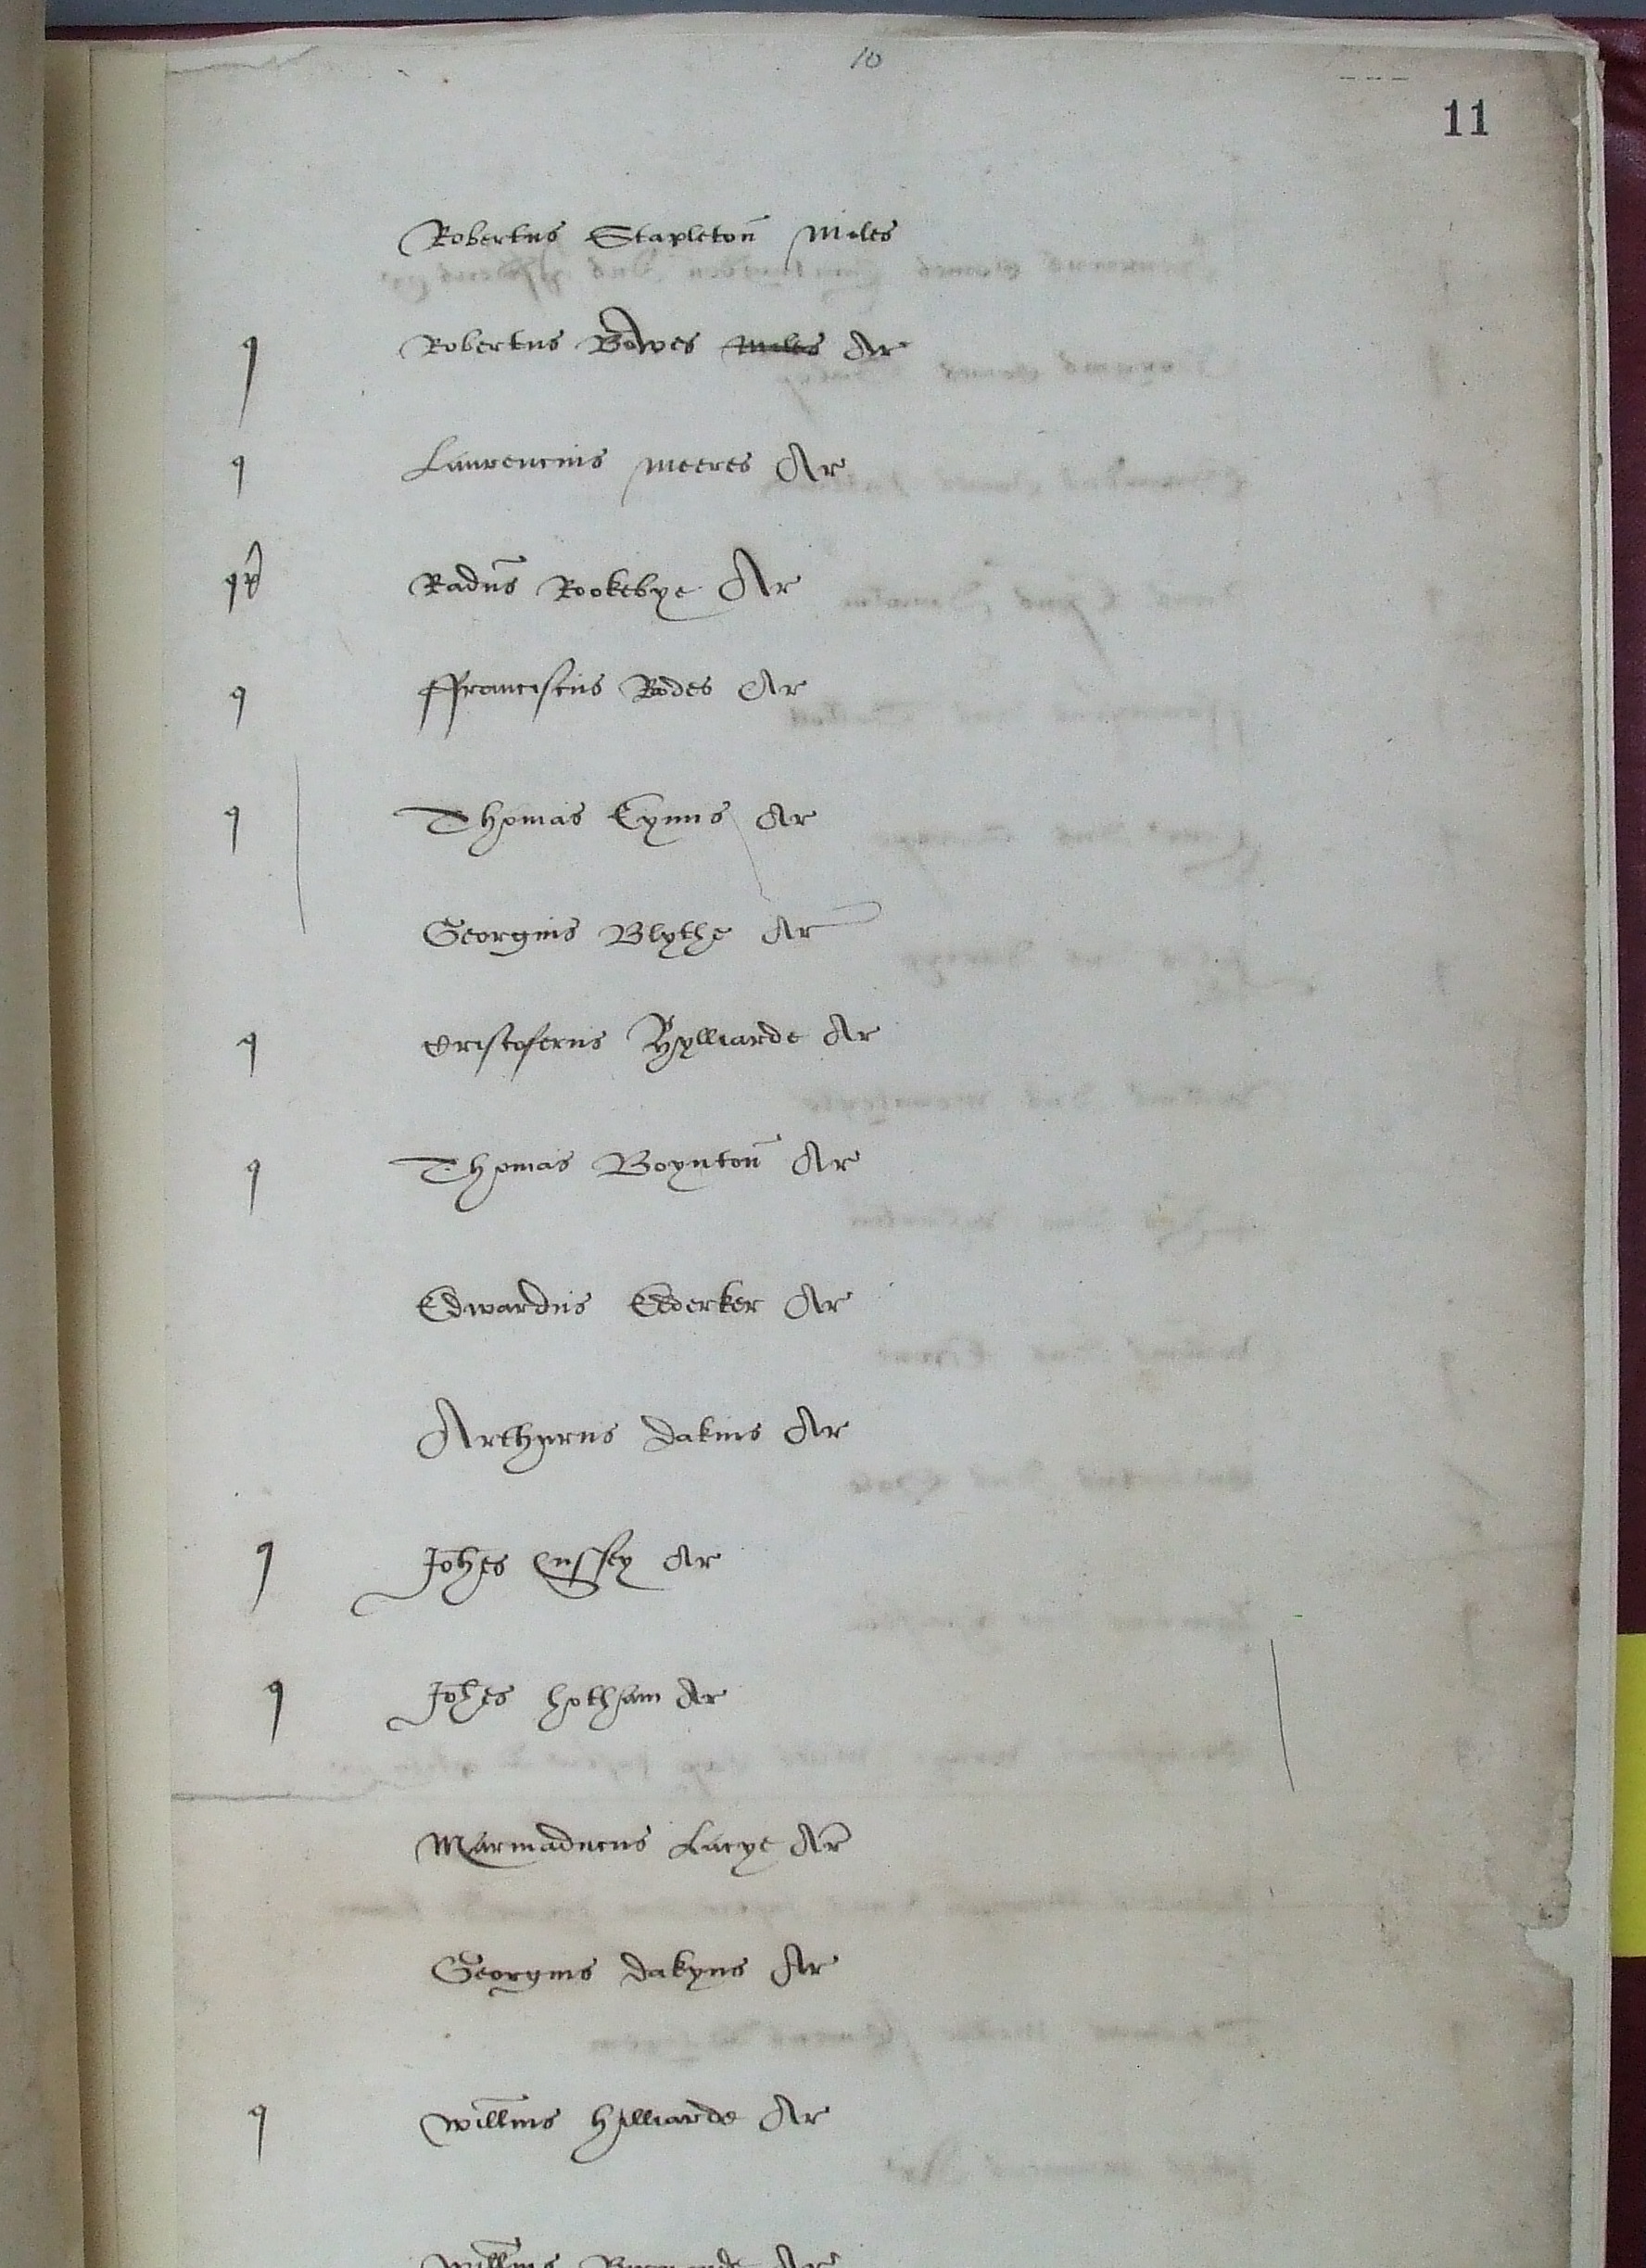 10
11
Robertus Stapleton Miles
q Robertus Bowes Miles Ar
q Laurencius Meeres Ar
q Radus Rookebye Ar
q ffranciscus Rodes Ar
q Thomas Eynns Ar
Georgius Blythe Ar
q Cristoferus Hylliarde Ar
q Thomas Boynton Ar
Edwardus Ellerker Ar
Arthurus dakins Ar
q Johes Cussey Ar
q Johes hotham Ar
Marmaducus Lacye Ar
Georgius dakyns Ar
q Willmus hilliarde Ar
Willmus Ar